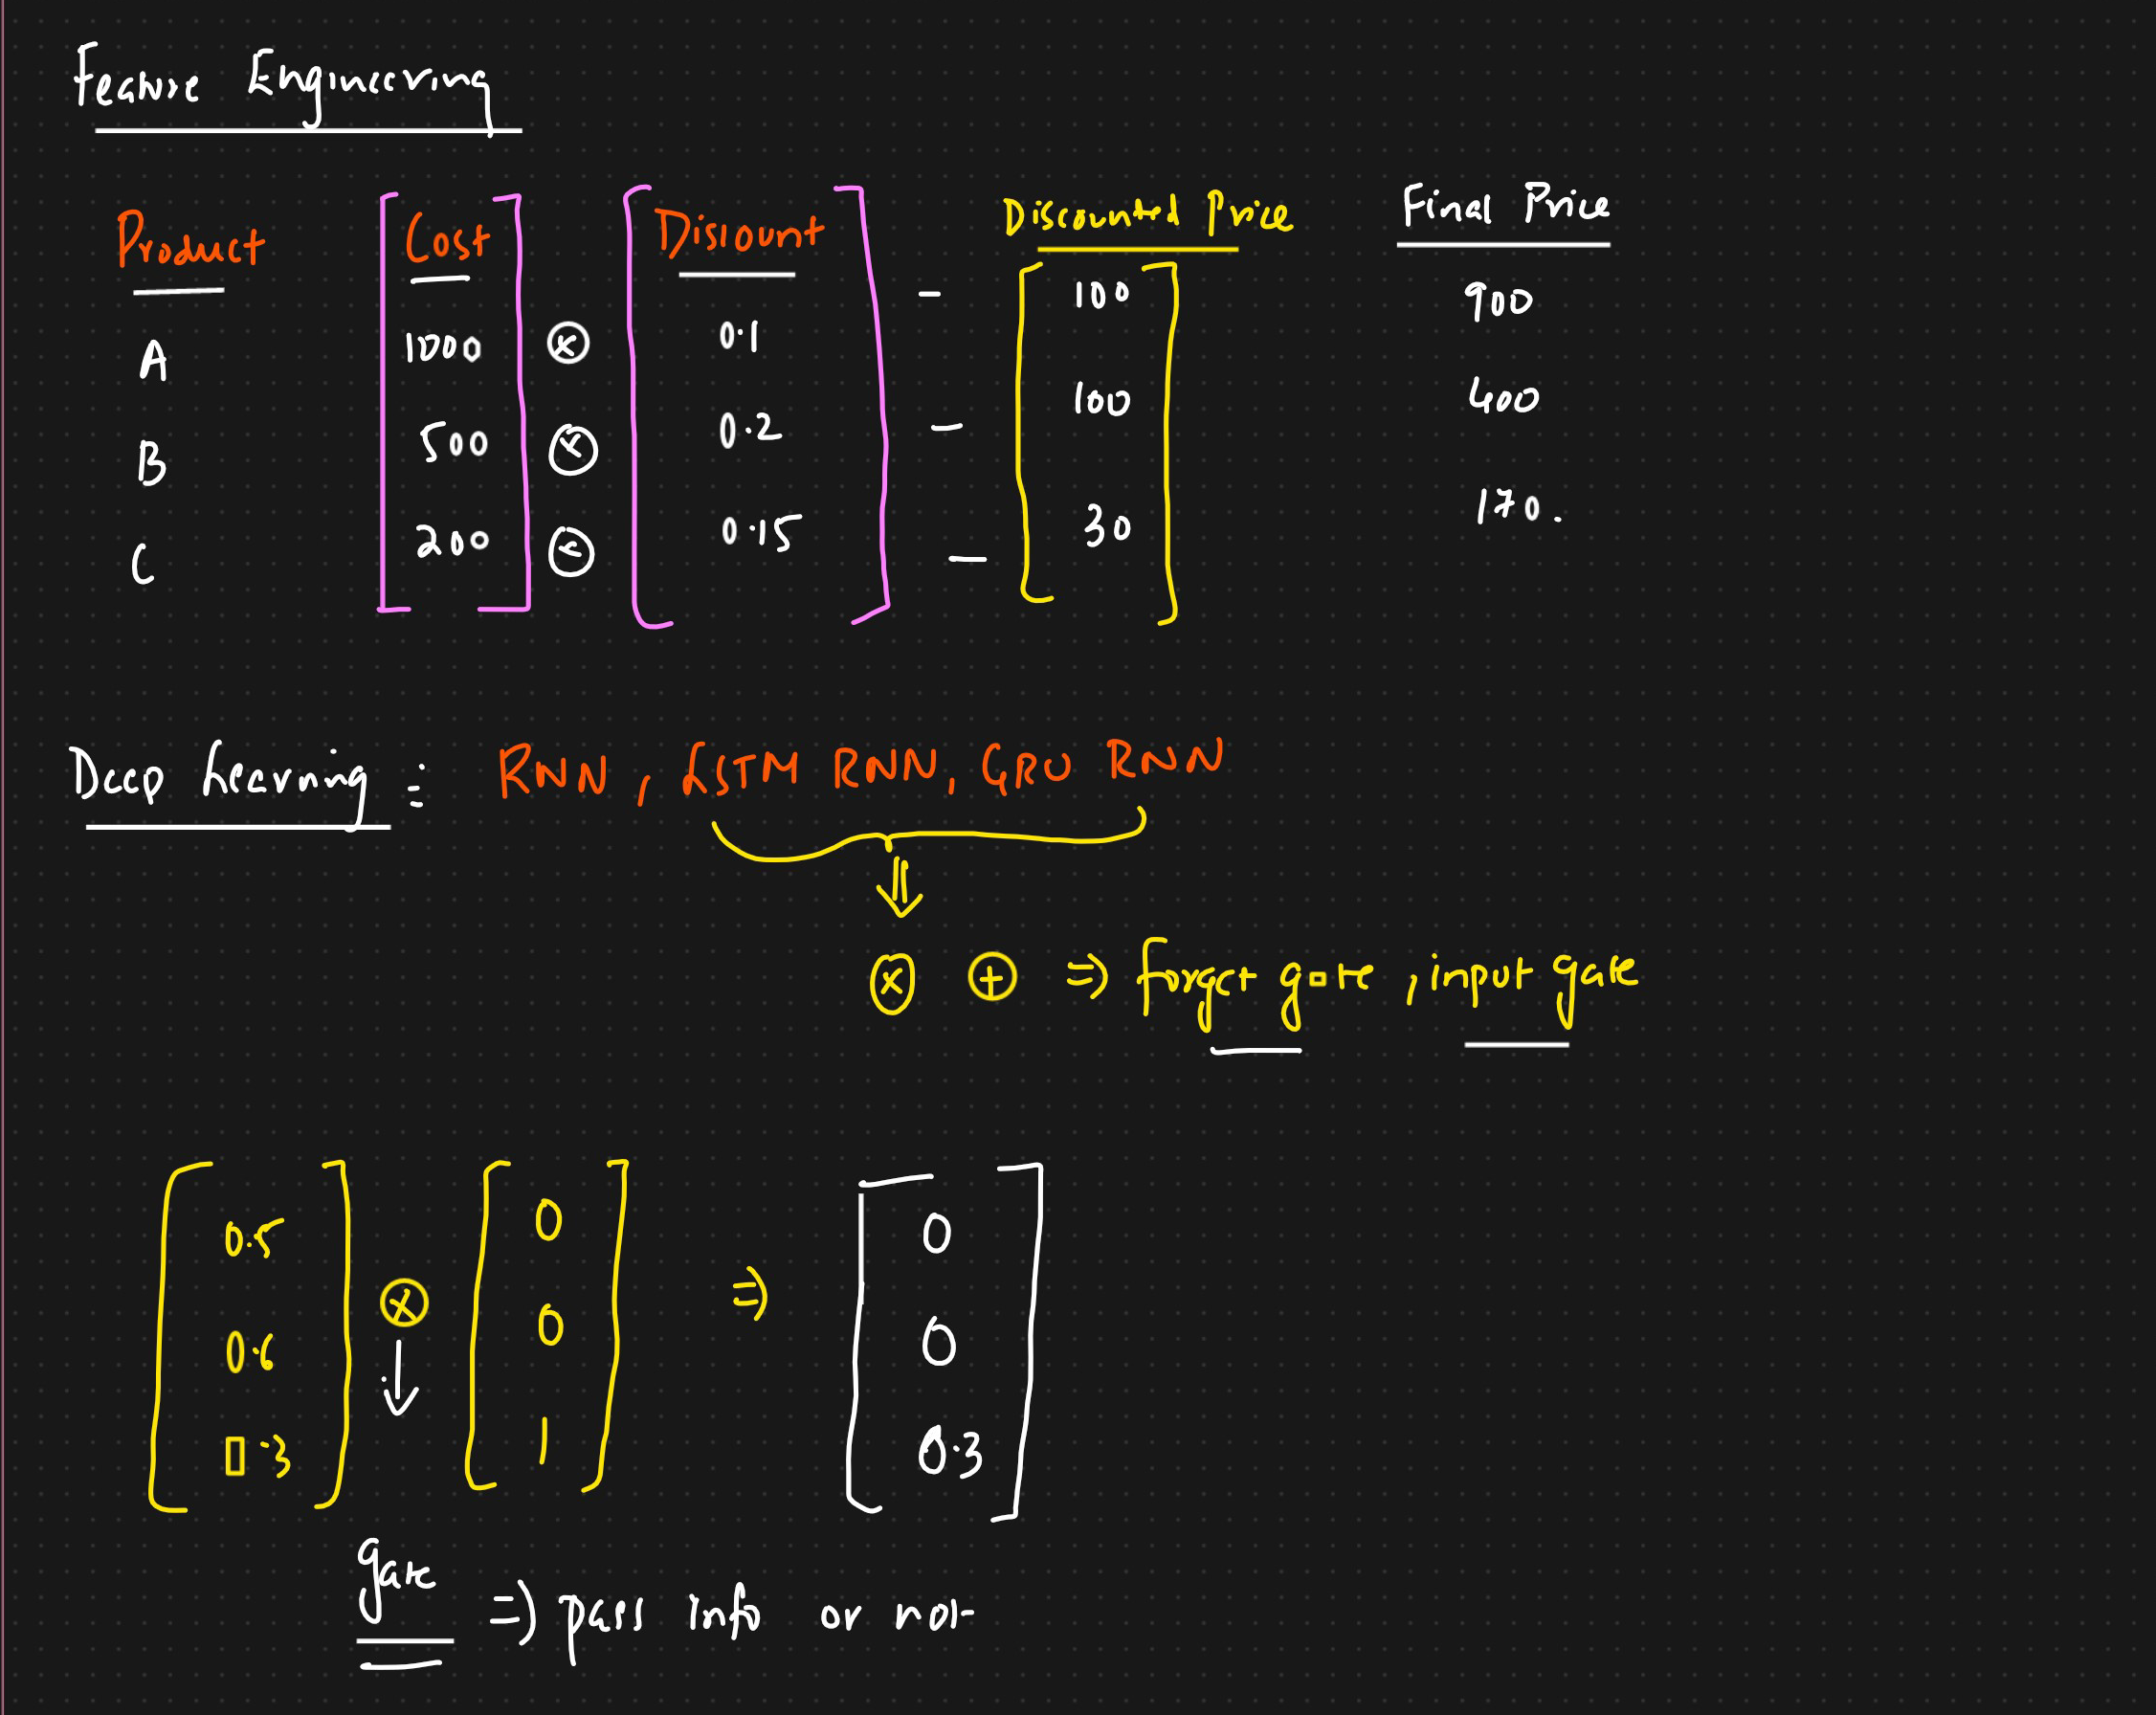 Feature Engineering
Product [Cost] [Discount] Discounted Price Final Price
A 1000 ⊗ 0.1 - 100 900
B 500 ⊗ 0.2 - 100 400
C 200 ⊗ 0.15 - 30 170.
Deep Learning := RNN, LSTM RNN, GRU RNN
⊗ ⊕ ⇒ forget gate, input gate
0.5 0 0
0.6 ⊗ 0 ⇒ 0
0.3 1 0.3
gate ⇒ pass info or not